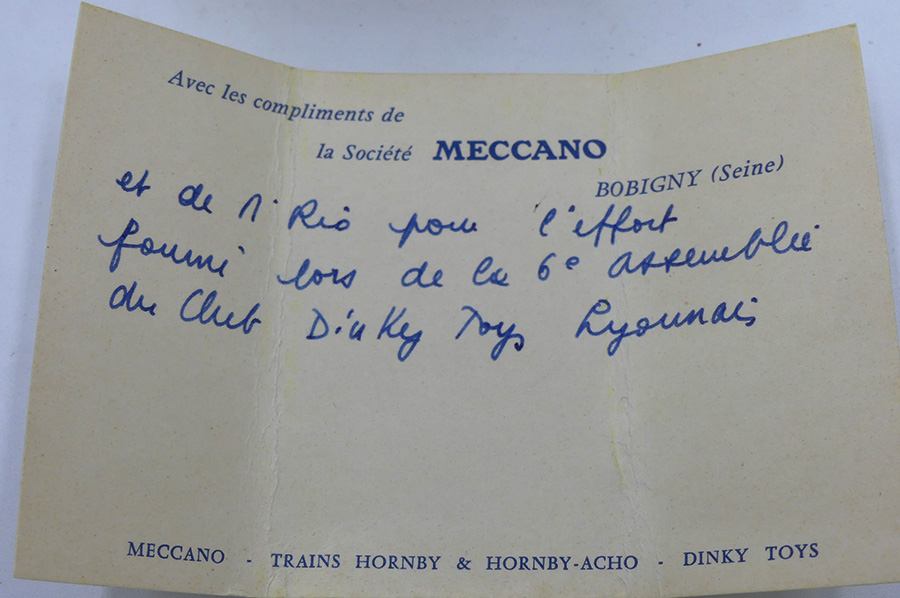 Avec les compliments de
la Société MECCANO
BOBIGNY (Seine)
et de Rio pour l'effort
fourni lors de la 6e assemblée
du Club Dinky Toys Lyonnais
MECCANO - TRAINS HORNBY & HORNBY-ACHO - DINKY TOYS